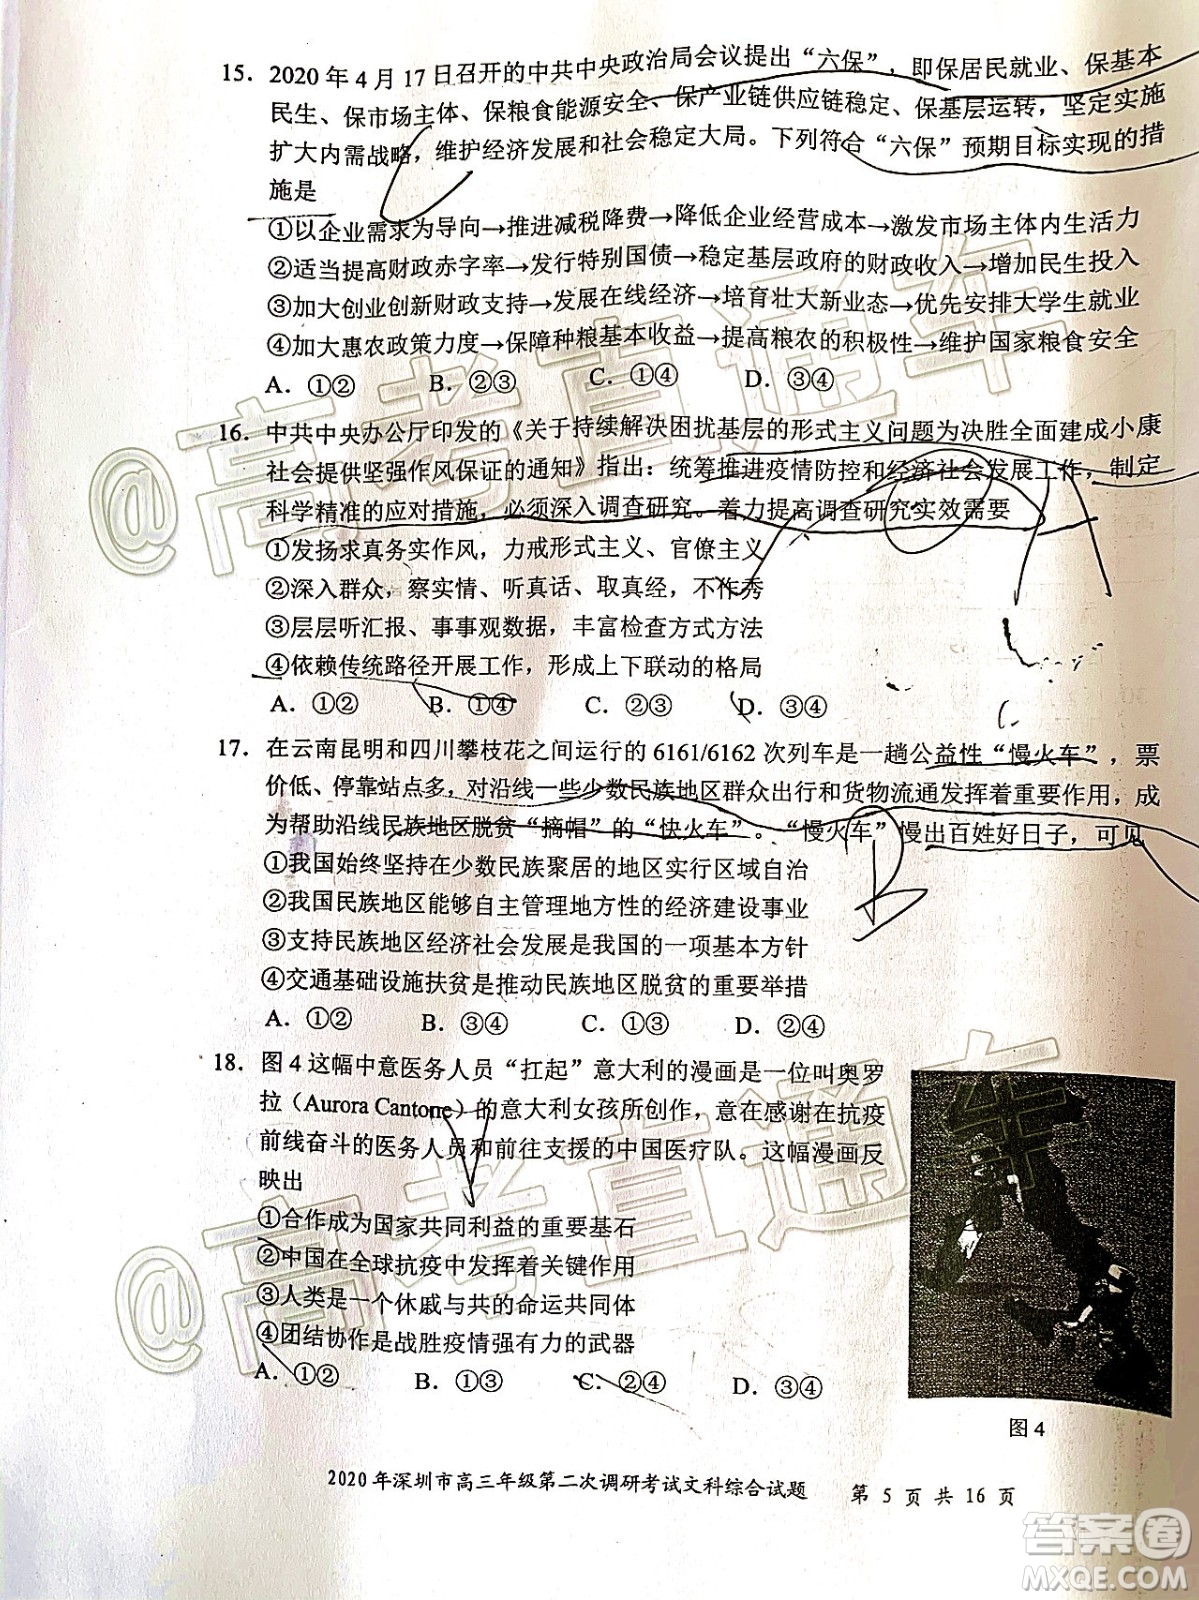 15. 2020年4月17日召开的中共中央政治局会议提出“六保”，即保居民就业、保基本
民生、保市场主体、保粮食能源安全、保产业链供应链稳定、保基层运转，坚定实施
扩大内需战略，维护经济发展和社会稳定大局。下列符合“六保”预期目标实现的措
施是
①以企业需求为导向→推进减税降费→降低企业经营成本→激发市场主体内生活力
②适当提高财政赤字率→发行特别国债→稳定基层政府的财政收入→增加民生投入
③加大创业创新财政支持→发展在线经济→培育壮大新业态→优先安排大学生就业
④加大惠农政策力度→保障种粮基本收益→提高粮农的积极性→维护国家粮食安全
A. ①② B. ②③ C. ①④ D. ③④
16. 中共中央办公厅印发的《关于持续解决困扰基层的形式主义问题为决胜全面建成小康
社会提供坚强作风保证的通知》指出：统筹推进疫情防控和经济社会发展工作，制定
科学精准的应对措施，必须深入调查研究。着力提高调查研究实效需要
①发扬求真务实作风，力戒形式主义、官僚主义
②深入群众，察实情、听真话、取真经，不作秀
③层层听汇报、事事观数据，丰富检查方式方法
④依赖传统路径开展工作，形成上下联动的格局
A. ①② B. ①④ C. ②③ D. ③④
17. 在云南昆明和四川攀枝花之间运行的6161/6162次列车是一趟公益性“慢火车”，票
价低、停靠站点多，对沿线一些少数民族地区群众出行和货物流通发挥着重要作用，成
为帮助沿线民族地区脱贫“摘帽”的“快火车”。“慢火车”慢出百姓好日子，可见
①我国始终坚持在少数民族聚居的地区实行区域自治
②我国民族地区能够自主管理地方性的经济建设事业
③支持民族地区经济社会发展是我国的一项基本方针
④交通基础设施扶贫是推动民族地区脱贫的重要举措
A. ①② B. ③④ C. ①③ D. ②④
18. 图4这幅中意医务人员“扛起”意大利的漫画是一位叫奥罗
拉（Aurora Cantone）的意大利女孩所创作，意在感谢在抗疫
前线奋斗的医务人员和前往支援的中国医疗队。这幅漫画反
映出
①合作成为国家共同利益的重要基石
②中国在全球抗疫中发挥着关键作用
③人类是一个休戚与共的命运共同体
④团结协作是战胜疫情强有力的武器
A. ①② B. ①③ C. ②④ D. ③④
图4
2020年深圳市高三年级第二次调研考试文科综合试题 第 5 页 共 16 页
@高考直通车
@高考直通车
B
答案圈
MXQE.COM